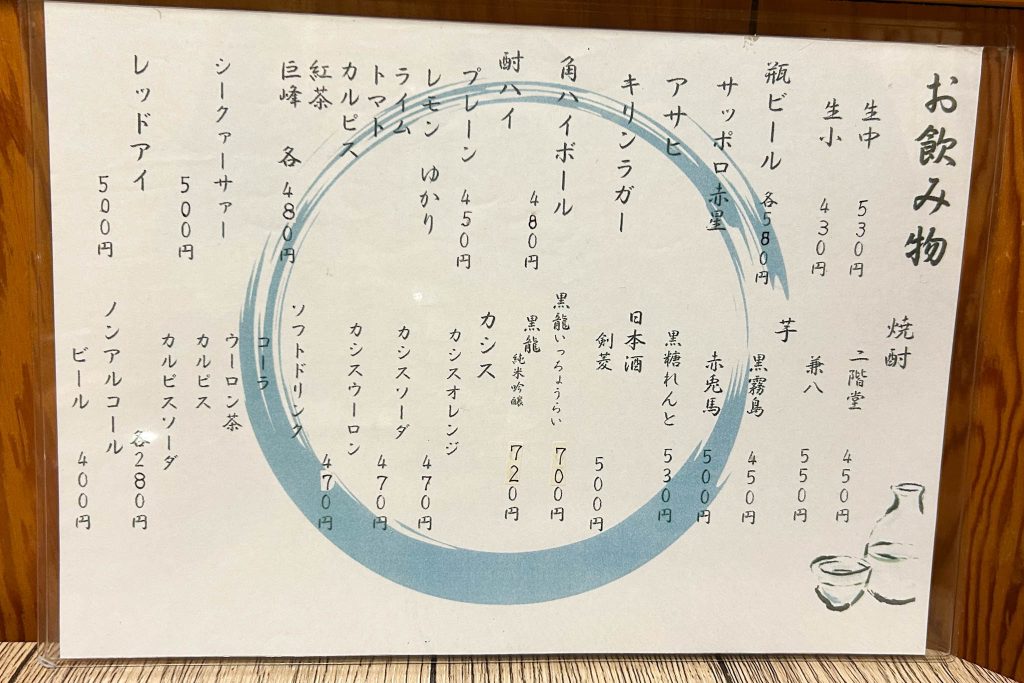 お飲み物
生中 530円
生小 430円
瓶ビール 各580円
サッポロ赤星
アサヒ
キリンラガー
角ハイボール 480円
酎ハイ
プレーン 450円
レモン ゆかり
ライム
トマト
カルピス
紅茶
巨峰 各480円
シークァーサァー 500円
レッドアイ 500円
焼酎
二階堂 450円
兼八 550円
芋
黒霧島 450円
赤兎馬 500円
黒糖れんと 530円
日本酒
剣菱 500円
黒龍いっちょうらい 700円
黒龍 純米吟醸 720円
カシス
カシスオレンジ 470円
カシスソーダ 470円
カシスウーロン 470円
ソフトドリンク
コーラ
ウーロン茶
カルピス
カルピスソーダ
各280円
ノンアルコール
ビール 400円